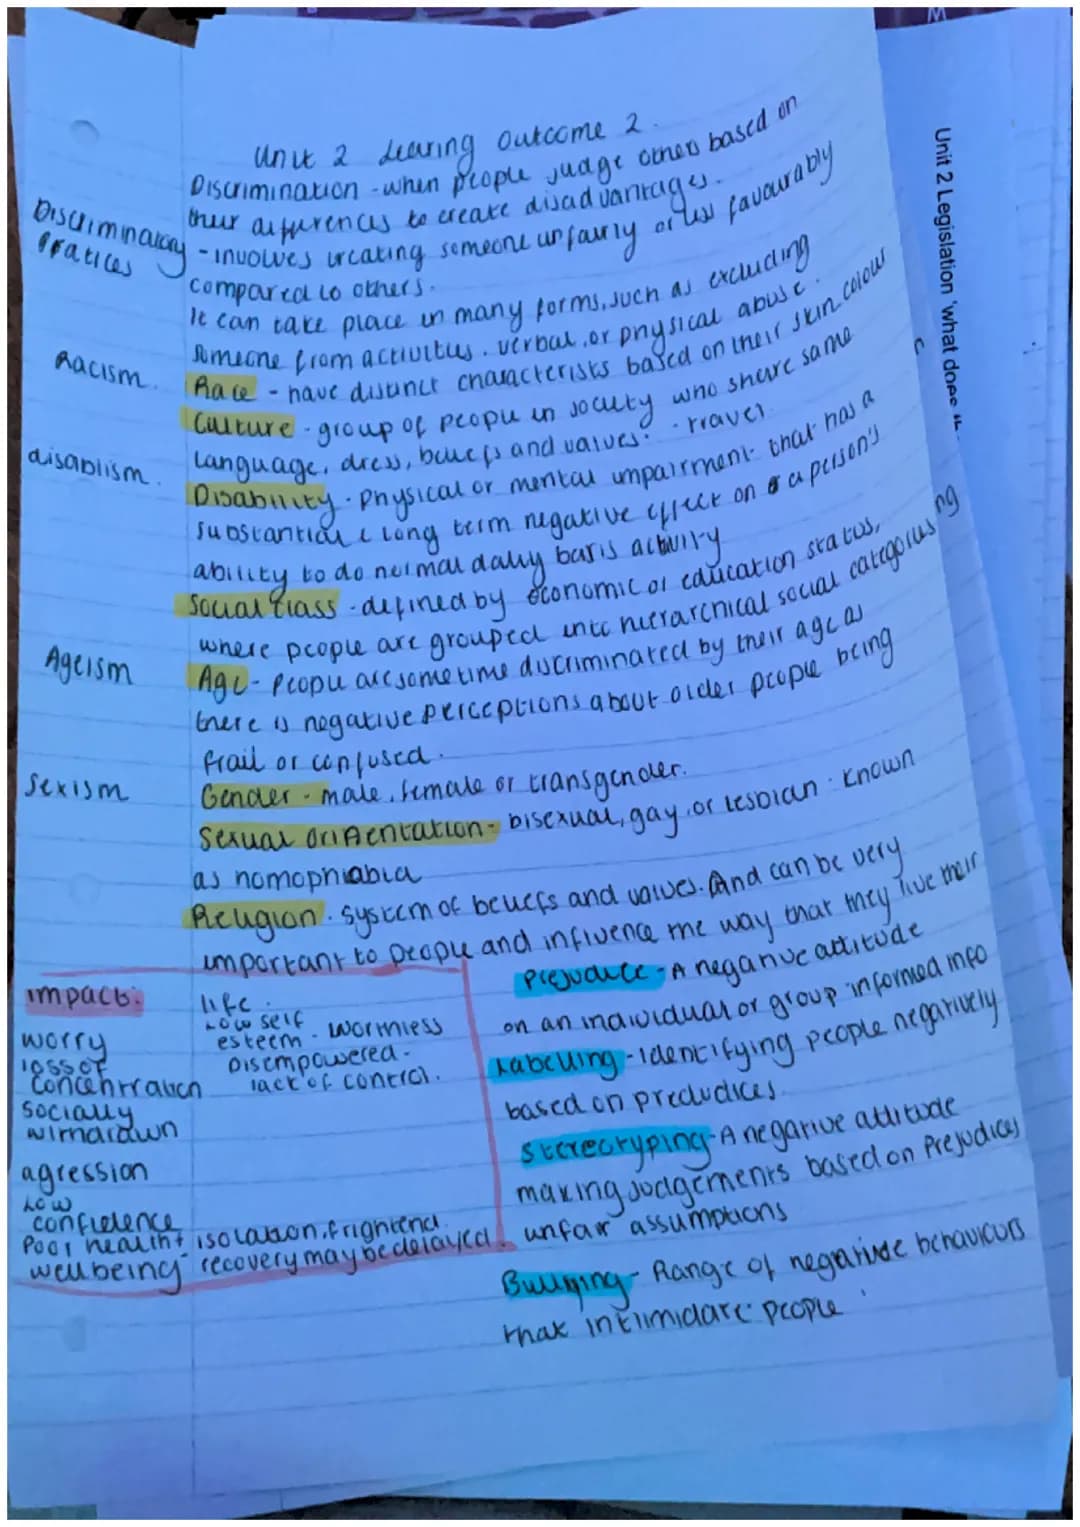 Unit 2 Learing Outcome 2.
Discrimination - when people judge others based on
their differences to create disadvantages.
Discriminatory
Pratices
- involves treating someone unfairly or less favourably
compared to others.
It can take place in many forms, such as excluding
someone from activities, verbal, or physical abuse.
Racism.
Race - have distinct characterists based on their skin colour
Culture - group of people in society who share same
language, dress, beliefs and values. - travel
disablism.
Disability - Physical or mental impairment that has a
substantial & long term negative effect on a person's
ability to do normal daily basis activity
Social Class - defined by economic or education status,
where people are grouped into hierarchical social categories
Ageism
Age - People are sometime discriminated by their age as
there is negative perceptions about older people being
frail or confused.
Sexism
Gender - male, female or transgender.
Sexual oriAentation - bisexual, gay, or lesbian. Known
as homophiabia
Religion - system of beliefs and values. And can be very
important to people and influence the way that they live their
life.
impact:
worry
loss of
concentration
socially
withdrawn
agression
Low
confidence
Poor health +
wellbeing
Low self
esteem. Worthless
Disempowered -
lack of control.
isolation, frightend.
recovery may be delayed.
Prejudice - A negative attitude
on an individual or group informed info
Labelling - identifying people negatively
based on predudices.
Stereotyping - A negative attitude
making judgements based on Prejudices
unfair assumptions
Bullying - Range of negative behaviours
that intimidate people
Unit 2 Legislation 'what does th
ng